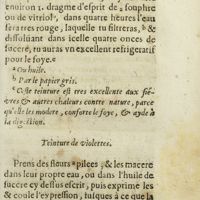 environ 1. dragme d'esprit de souphre
ou de vitriol, dans quatre heures l'eau
sera tres rouge, laquelle tu filtreras, b &
dissoluant dans icelle quatre onces de
succre, tu auras vn excellent refrigeratif
pour le foye. c
a Ou huile.
b Par le papier gris.
c Cette teinture est tres excellente aux fié-
vres & autres chaleurs contre nature, parce
qu'elle les modere, conforte le foye, & ayde à
la digestion.
Teinture de violettes.
Prens des fleurs pilées, & les macere
dans leur propre eau, ou dans l'huile de
succre cy dessus escrit, puis exprime les
& coule l'expression, iusques à ce que la